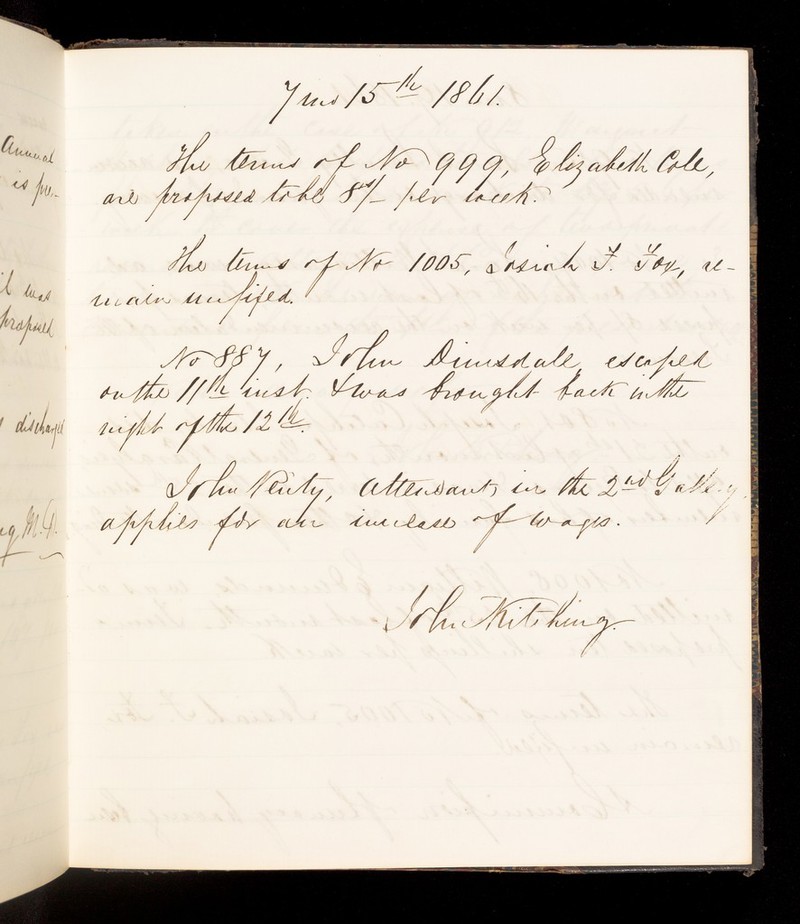 Annual
is pre-
il was
proposed
discharge
M.D.
7 mo 15th 1861.
The terms of No 999, Elizabeth Cole,
are proposed to be 8s/- per week.
The terms of No 1005, Josiah F. Fox, re-
main unfixed.
No 887, John Dimsdale, escaped
on the 11th inst. & was brought back in the
night of the 12th.
John Venty, Attendant in the 2nd Gallery,
applies for an increase of wages.
John Kitching.